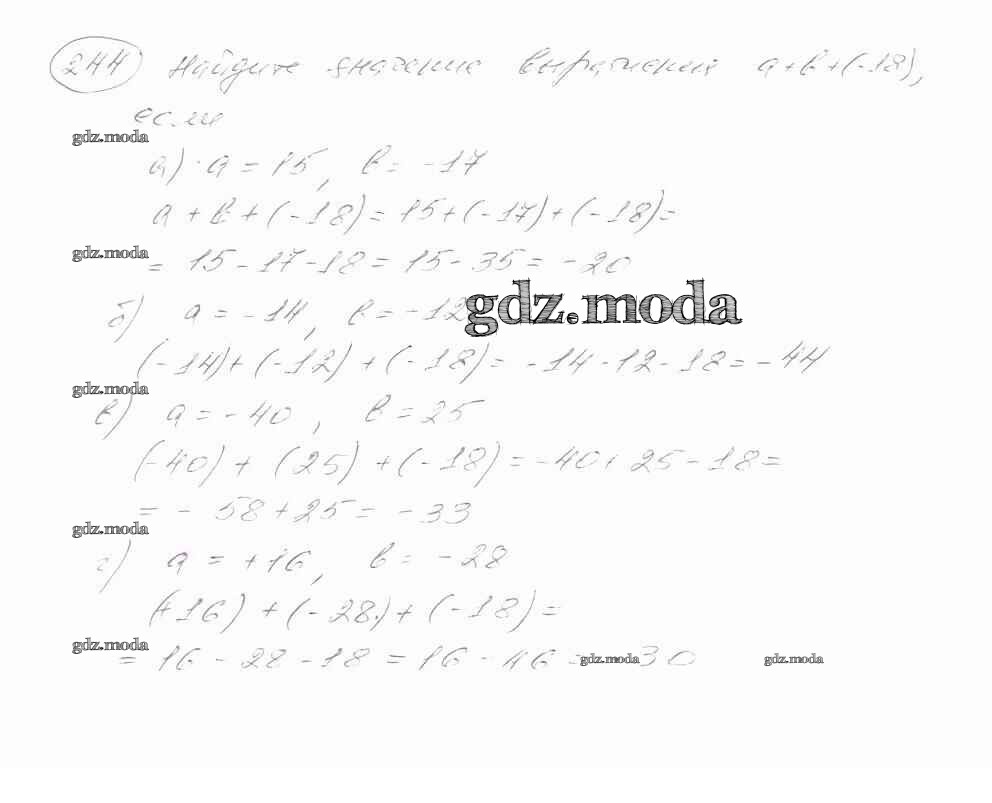 244 Найдите значение выражения a+b+(-18),
если
gdz.moda
а) a = 15, b = -17
a + b + (-18) = 15+(-17)+(-18)=
gdz.moda
= 15-17-18 = 15-35 = -20
б) a = -14, b = -12
gdz.moda
(-14)+(-12)+(-18)= -14-12-18=-44
gdz.moda
в) a = -40, b = 25
(-40) + (25) + (-18) = -40+25-18=
= - 58+25= -33
gdz.moda
г) a = +16, b = -28
(+16) + (-28) + (-18) =
gdz.moda
= 16 - 28 - 18 = 16 - 46 = 30
gdz.moda
gdz.moda